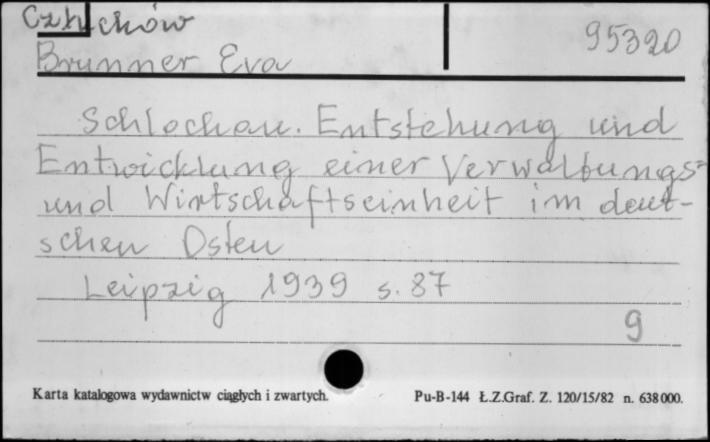 Człuchów
95320
Brunner Eva
Schlochau. Entstehung und
Entwicklung einer Verwaltungs=
und Wirtschaftseinheit im deut-
schen Osten
Leipzig 1939 s. 87
9
Karta katalogowa wydawnictw ciągłych i zwartych.
Pu-B-144 Ł.Z.Graf. Z. 120/15/82 n. 638000.